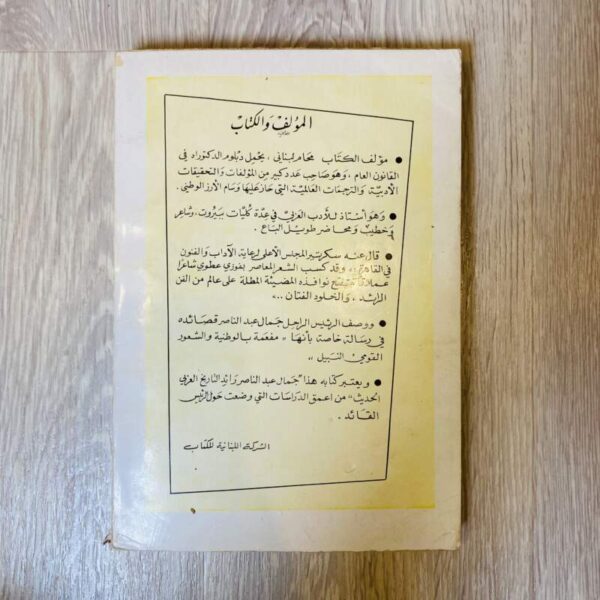 المؤلف والكتاب
● مؤلف الكتاب محام لبناني، يحمل دبلوم الدكتوراه في
القانون العام، وهو صاحب عدد كبير من المؤلفات والتحقيقات
الأدبية والترجمات العالمية التي حاز عليها وسام الأرز الوطني.
● وهو أستاذ للأدب العربي في عدة كليات بيروت، وشاعر
وخطيب ومحاضر طويل الباع.
● قال عنه سكرتير المجلس الأعلى لرعاية الآداب والفنون
في القاهرة: «وقد كسب الشعر المعاصر بفوزي عطوي شاعرا
عملاقا تنفتح نوافذه المضيئة المطلة على عالم من الفن
الرائد، والخلود الفتان ..»
● ووصف الرئيس الراحل جمال عبد الناصر قصائده
في رسالة خاصة بأنها «مفعمة بالوطنية والشعور
القومي النبيل»
● ويعتبر كتابه هذا "جمال عبد الناصر رائد التاريخ العربي
الحديث" من اعمق الدراسات التي وضعت حول الرئيس
القائد.
الشركة اللبنانية للكتاب